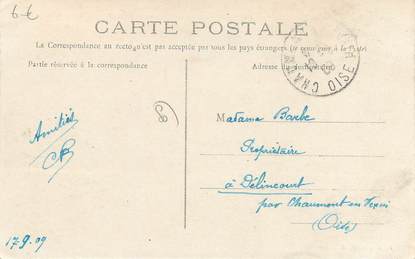 6 €
CARTE POSTALE
La Correspondance au recto n'est pas acceptée par tous les pays étrangers (se renseigner à la Poste)
Partie réservée à la correspondance
Adresse du destinataire
OISE
Amitiés
Madame Barbe
Propriétaire
à Délincourt
par Chaumont en Vexin
(Oise)
17-9-09